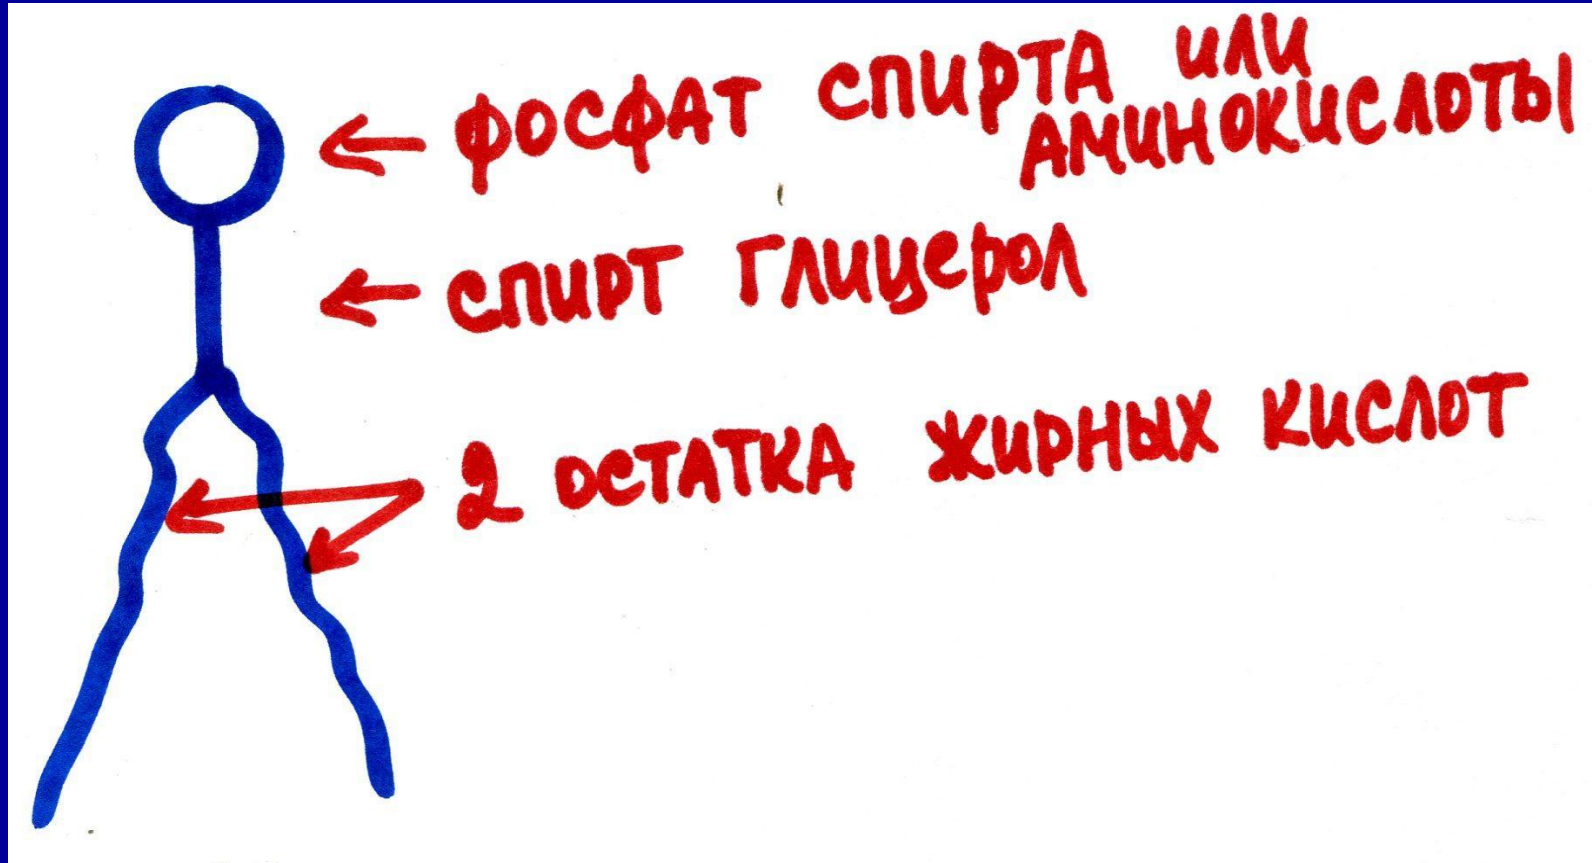 фосфат спирта или
аминокислоты
спирт глицерол
2 остатка жирных кислот